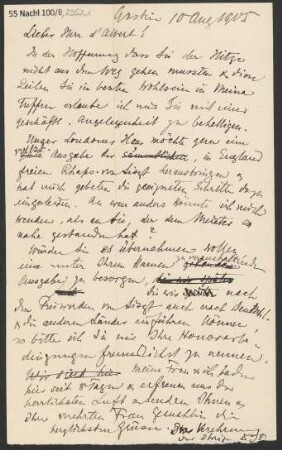 55 Nachl 100/B,
Gastein 10 Aug 1905
Lieber Herr d'Albert!
In der Hoffnung dass Sie der Hitze
nicht aus dem Weg gehen mussten & diese
Zeilen Sie in bestem Wohlsein in Meina
treffen erlaube ich mir Sie mit einer
geschäftl. Angelegenheit zu behelligen.
Unser Londoner Haus möchte gern eine
Ausgabe der in England
freien Rhaps. von Liszt herausbringen &
hat mich gebeten die geeigneten Schritte dazu
einzuleiten. An wen anders könnte ich mich
wenden, als an Sie, der dem Meister so
nahe gestanden hat?
Würden Sie es übernehmen wollen
eine unter Ihrem Namen zu
Ausgabe zu besorgen,
die wir nach
dem Freiwerden von Liszt auch nach Deutschl.
& die anderen Länder einführen können
so bitte ich Sie mir Ihre Honorarbe-
dingungen freundlichst zu nennen.
Meine Frau & ich sind
hier seit 8 Tagen & erfreuen uns der
herrlichsten Luft & senden Ihnen &
Ihrer verehrten Frau Gemahlin die
herzlichsten Grüsse.